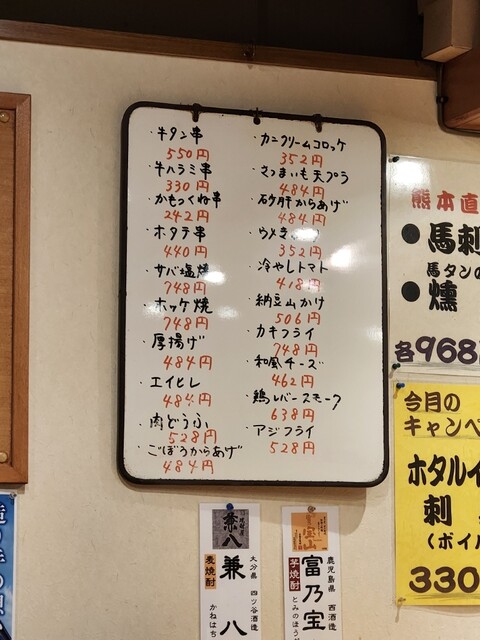 ・牛タン串
550円
・牛ハラミ串
330円
・かもつくね串
242円
・ホタテ串
440円
・サバ塩焼
748円
・ホッケ焼
748円
・厚揚げ
484円
・エイヒレ
484円
・肉どうふ
528円
・ごぼうからあげ
484円
・カニクリームコロッケ
352円
・さつまいも天プラ
484円
・砂肝からあげ
484円
・ウメ
352円
・冷やしトマト
418円
・納豆山かけ
506円
・カキフライ
748円
・和風チーズ
462円
・鶏レバースモーク
638円
・アジフライ
528円
熊本直
●馬刺
馬タンの
●燻
各968
今月の
キャンペ
ホタルイ
刺
(ボイル
330
兼八
麦焼酎
大分県 四ツ谷酒造
かねはち
富乃宝
芋焼酎
鹿児島県 西酒造
とみのほう